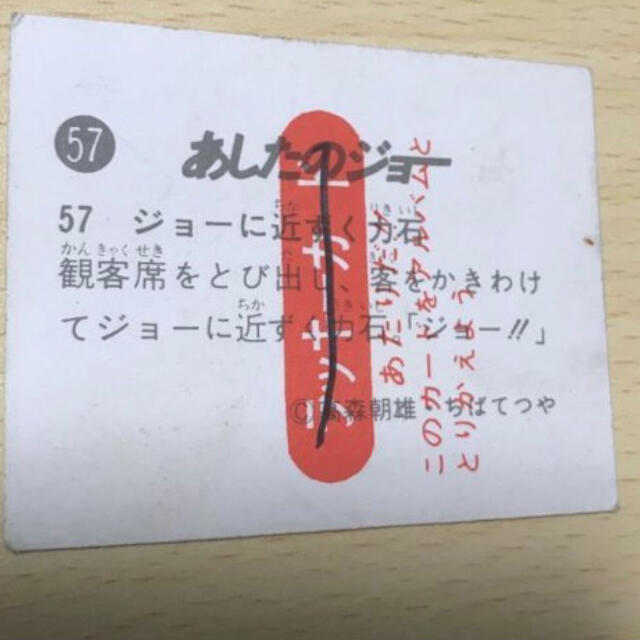 57
あしたのジョー
57 ジョーに近ずく力石
観客席をとび出し、客をかきわけ
てジョーに近ずく力石「ジョー!!」
©高森朝雄・ちばてつや
ラッキーカード
あたりだ!
このカードをアルバムと
とりかえよう